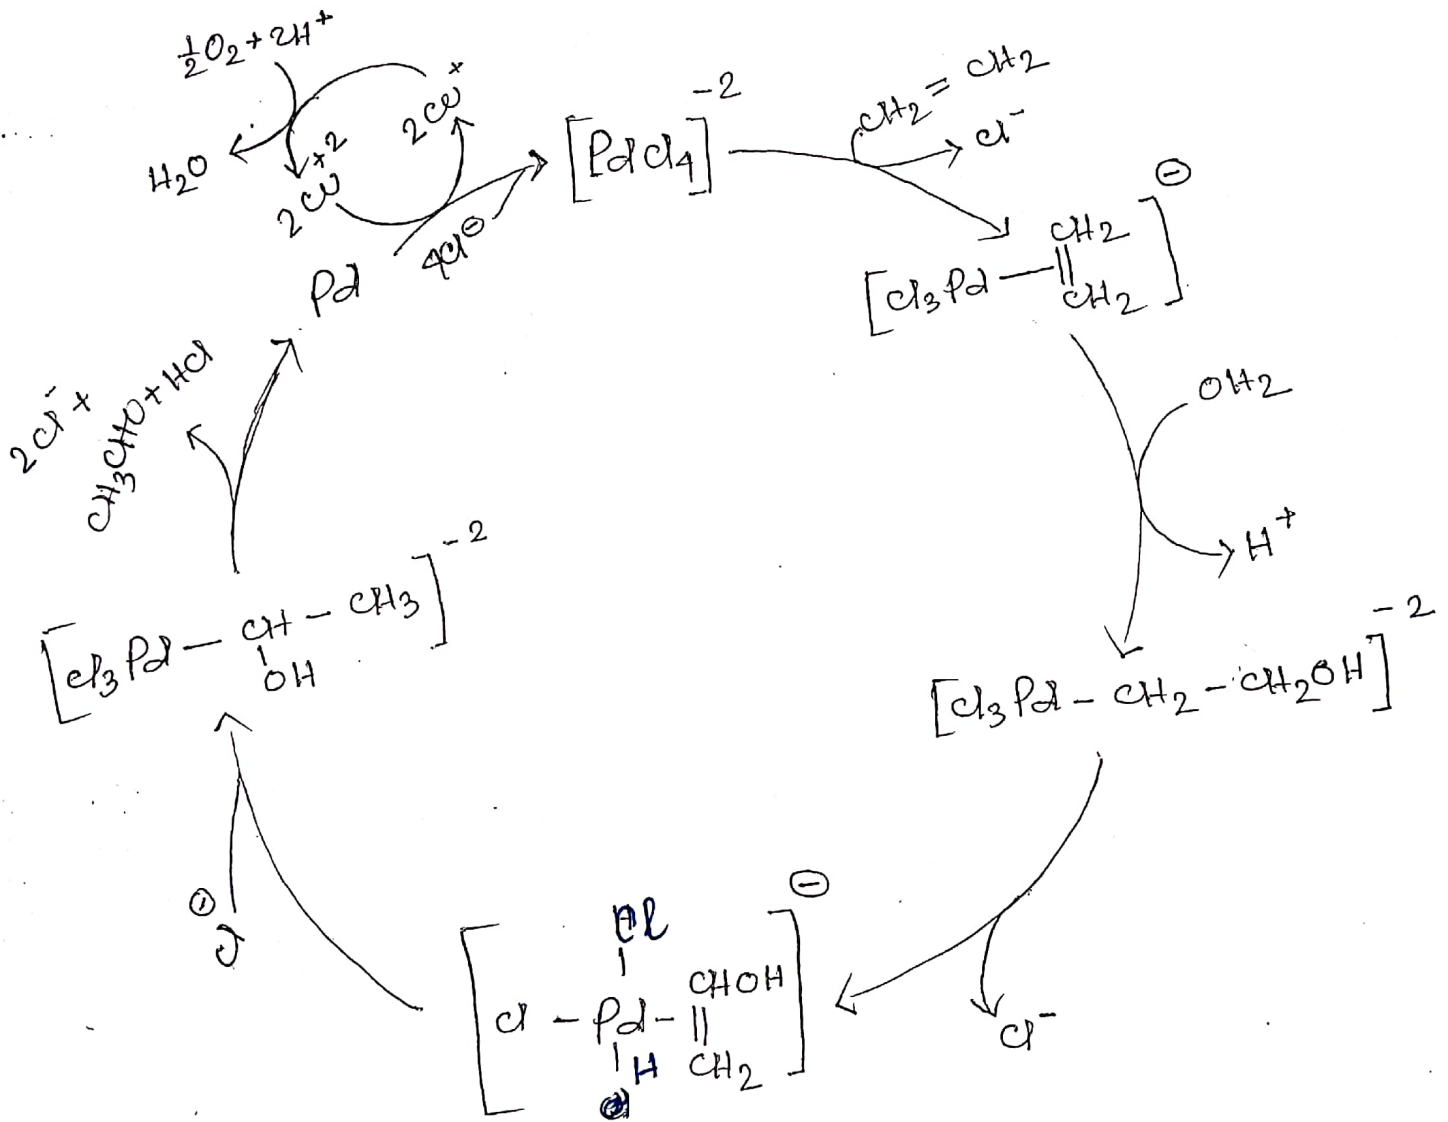 ½O2 + 2H+
H2O
2Cu+2
2Cu+
4Cl⊖
[PdCl4]-2
CH2 = CH2
Cl-
[Cl3Pd — CH2 || CH2]⊖
OH2
H+
[Cl3Pd - CH2 - CH2OH]-2
Cl-
[Cl - Pd - CHOH || CH2]⊖
Cl
H
[Cl3Pd — CH - CH3]-2
OH
2Cl- +
CH3CHO + HCl
Pd